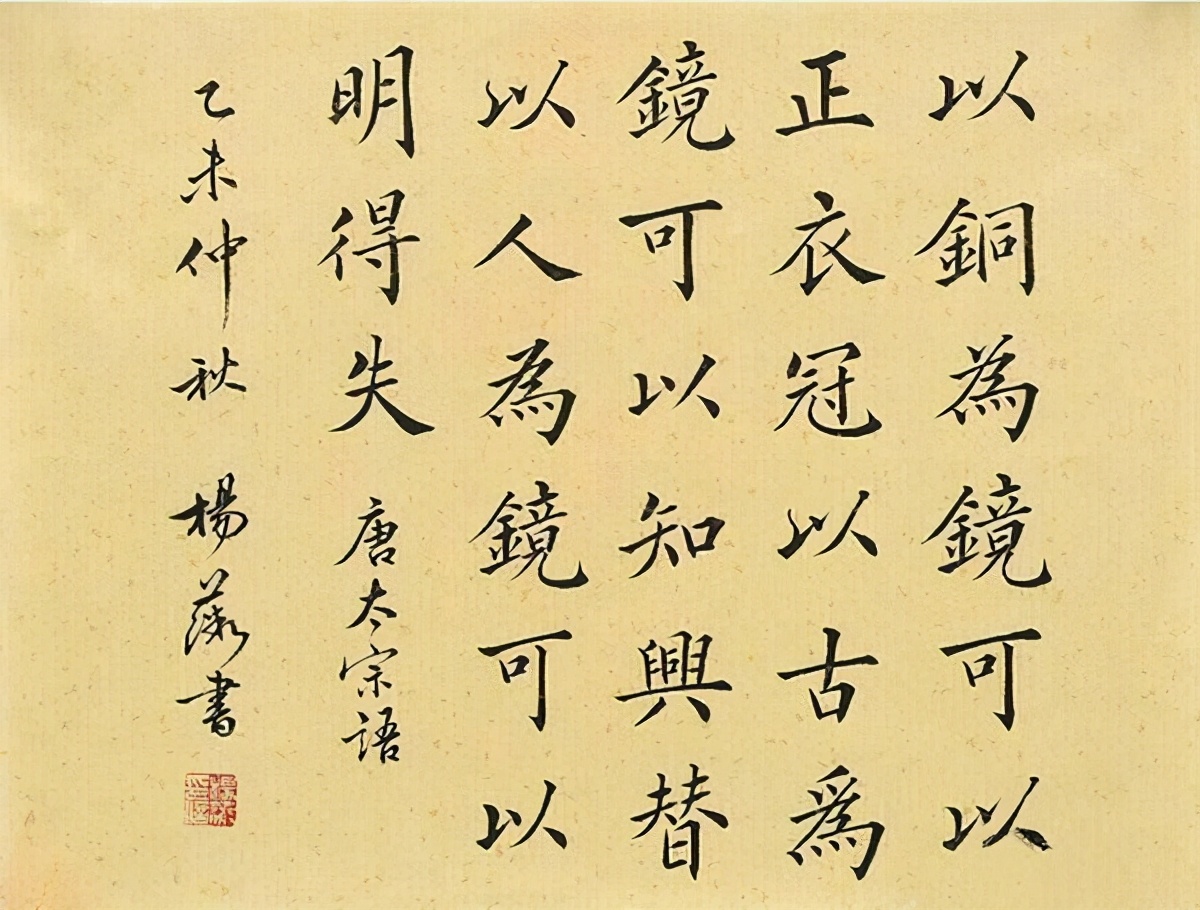 以銅為鏡可以
正衣冠以古爲
鏡可以知興替
以人為鏡可以
明得失
唐太宗語
乙未仲秋 楊薇書